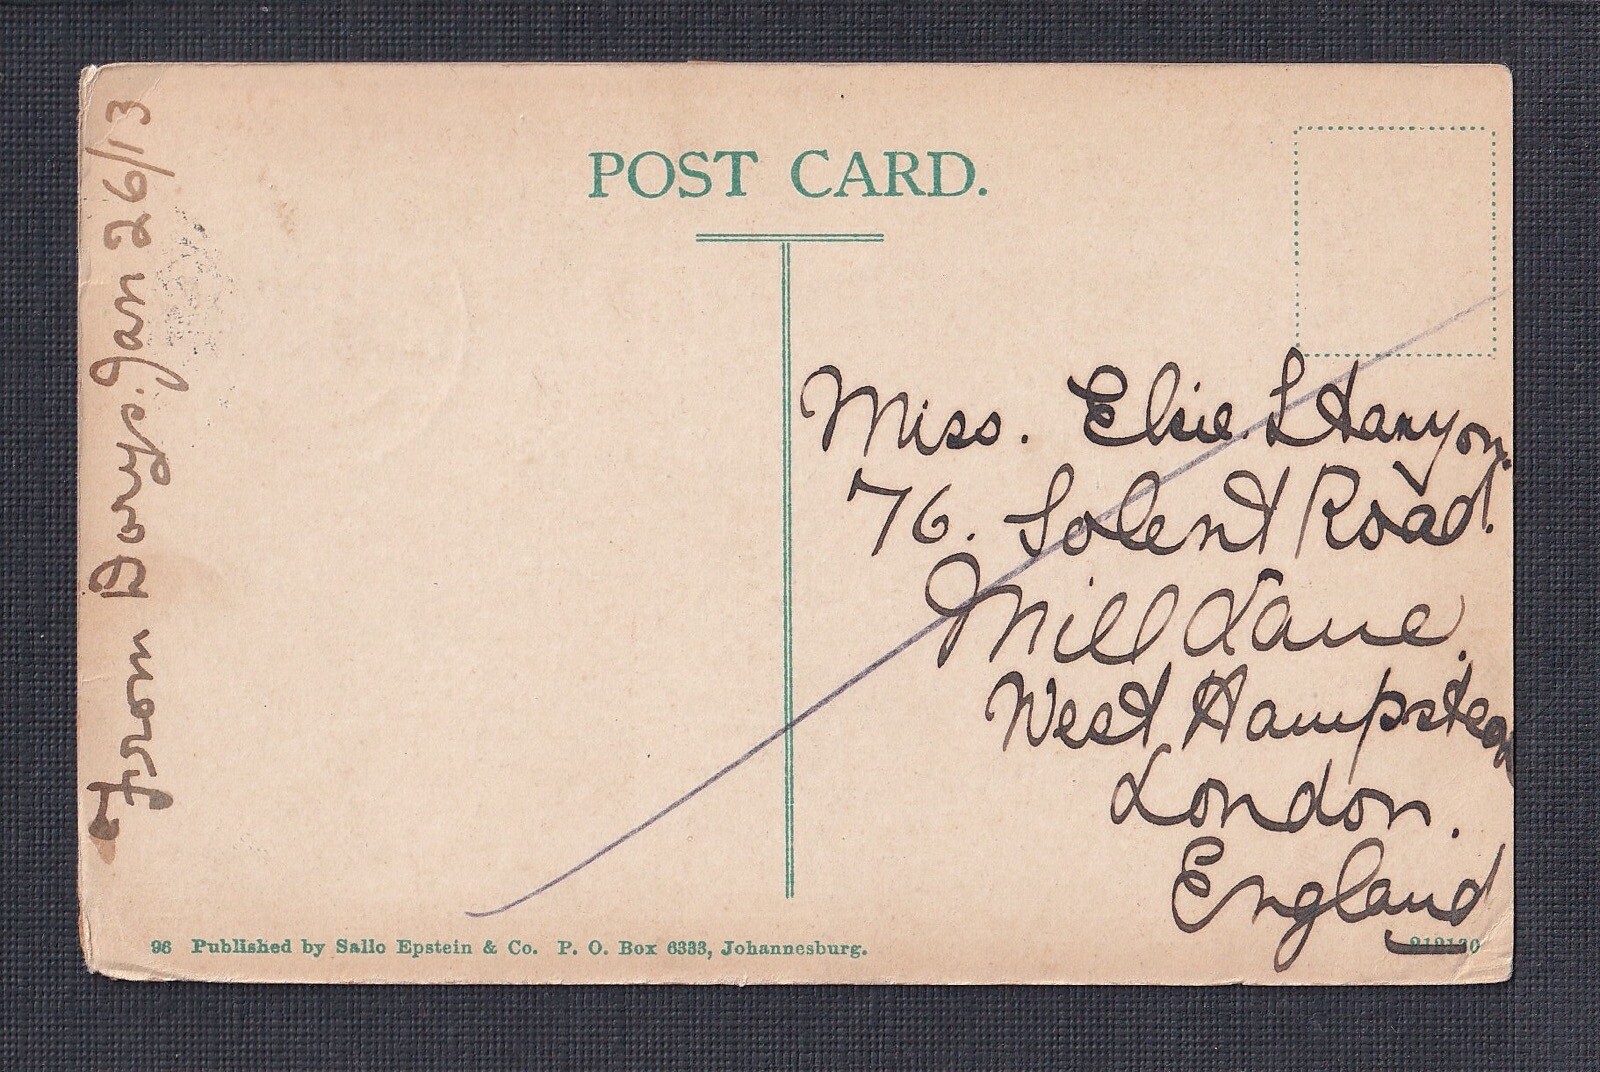 POST CARD.
Miss. Elsie. L Hanyon.
76. Solent Road.
Mill Lane.
West Hampstead
London.
England
From Dorys. Jan 26/13
96 Published by Sallo Epstein & Co. P. O. Box 6333, Johannesburg.